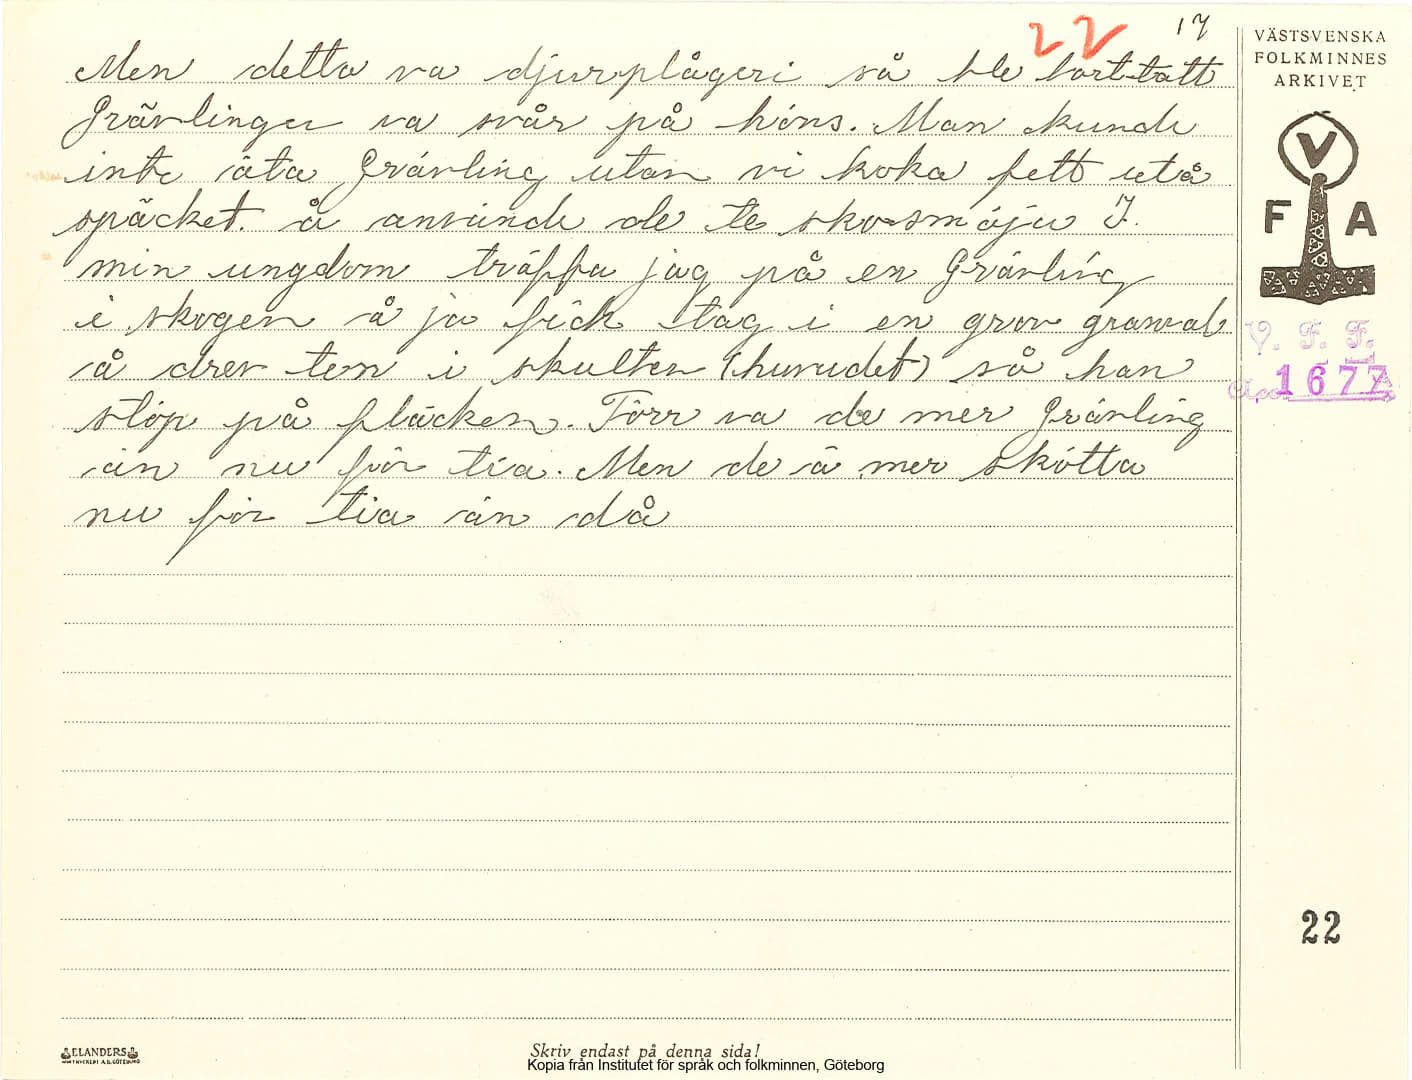 22 17
Men detta va djurplågeri så ble borttatt
Grävlinger va svår på höns. Man kunde
inte äta Grävling utan vi koka fett utå
späcket. å använde de te sko-smöju I.
min ungdom träffa jag på en Grävling
i skogen å ja fick tag i en grov granral
å drev ten i skulten (huvudet) så han
stöp på fläcken. Förr va de mer Grävling
än nu för tia. Men de ä mer skötta
nu för tia än då
VÄSTSVENSKA
FOLKMINNES
ARKIVET
V
F A
V. F. F.
Acc. 1677
22
ELANDERS
Skriv endast på denna sida!
Kopia från Institutet för språk och folkminnen, Göteborg